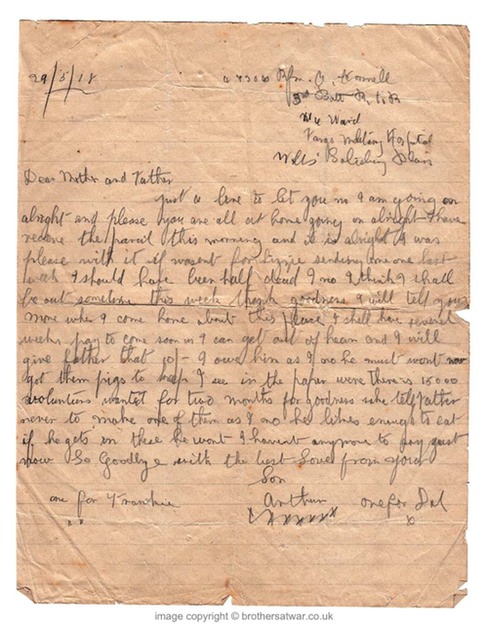 29/5/18 Rfm. A.
3rd Batt R. I. R
Ward
Fargo Military Hospital
Wilts Salisbury Plain
Dear Mother and Father
just a line to let you no I am going on
alright and please you are all at home going on alright I have
receive the parcil this morning and it is alright I was
please with it if wosent for Lizzie sending me one last
week I should have been half dead I no I think I shall
be out sometime this week thank goodness I will tell you
more when I come home about this place I shall have several
weeks pay to come soon as I can get out of hear and I will
give father that 10/- I owe him as I no he must wont
got them pigs to keep I see in the paper were there is 15000
volunters wanted for two months for goodness sake tell father
never to make one of them as I no he likes enough to eat
if he gets in these he wont I havent anymore to say just
now So Goodbye with the best Love from your
Son
one for Frankie Arthur one for Dal
xxxxxx x
image copyright © brothersatwar.co.uk